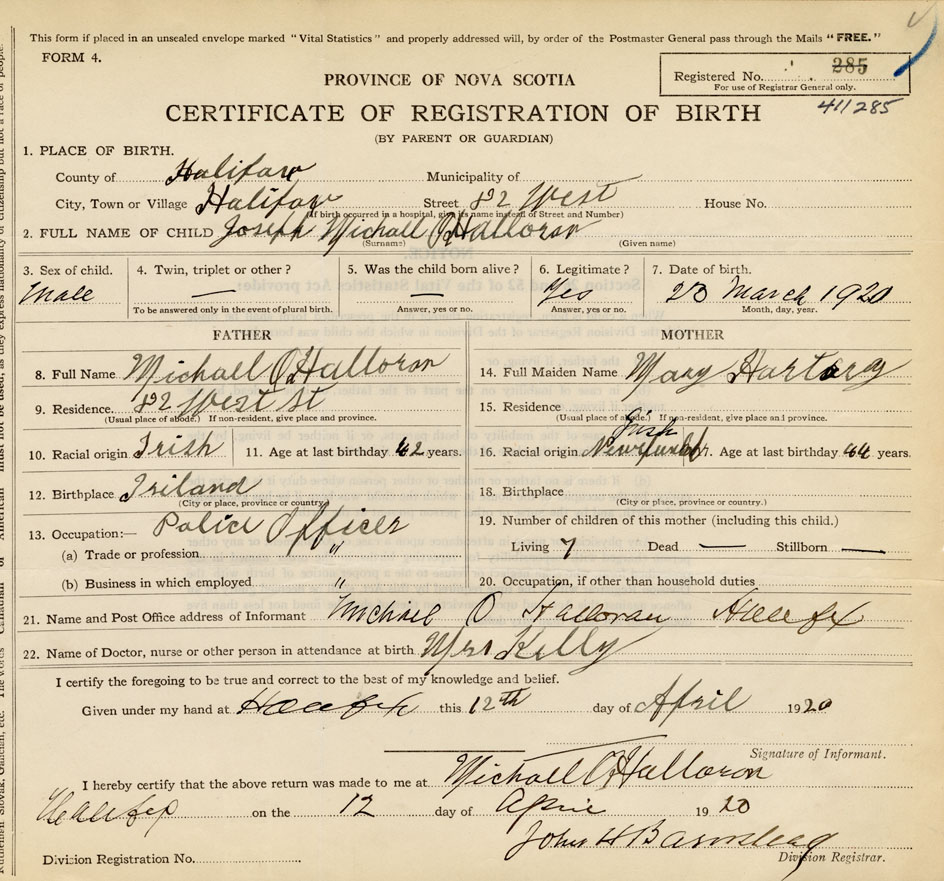 This form if placed in an unsealed envelope marked "Vital Statistics" and properly addressed will, by order of the Postmaster General pass through the Mails "FREE."
FORM 4.
Registered No. 285
For use of Registrar General only.
411285
PROVINCE OF NOVA SCOTIA
CERTIFICATE OF REGISTRATION OF BIRTH
(BY PARENT OR GUARDIAN)
1. PLACE OF BIRTH.
County of Halifax Municipality of
City, Town or Village Halifax Street 82 West House No.
(If birth occurred in a hospital, give its name instead of Street and Number)
2. FULL NAME OF CHILD Joseph Michael O'Halloran
(Surname) (Given name)
3. Sex of child. 4. Twin, triplet or other? 5. Was the child born alive? 6. Legitimate? 7. Date of birth.
Male — — Yes 20 March 1920
To be answered only in the event of plural birth. Answer, yes or no. Answer, yes or no. Month, day, year.
FATHER MOTHER
8. Full Name Michael O'Halloran 14. Full Maiden Name Mary
9. Residence. 182 West St 15. Residence
(Usual place of abode.) If non-resident, give place and province. (Usual place of abode.) If non-resident, give place and province.
Irish
10. Racial origin Irish 11. Age at last birthday 42 years. 16. Racial origin 17. Age at last birthday 44 years.
12. Birthplace Iriland 18. Birthplace
(City or place, province or country) (City or place, province or country.)
13. Occupation:— Police Officer 19. Number of children of this mother (including this child.)
(a) Trade or profession " Living 7 Dead — Stillborn —
(b) Business in which employed " 20. Occupation, if other than household duties
21. Name and Post Office address of Informant Michael O Halloran Halifax
22. Name of Doctor, nurse or other person in attendance at birth. Mrs Kelly
I certify the foregoing to be true and correct to the best of my knowledge and belief.
Given under my hand at Halifax this 12th day of April 1920
Signature of Informant.
I hereby certify that the above return was made to me at Michael O'Halloran
Halifax on the 12 day of April 1920
John H
Division Registration No. Division Registrar.